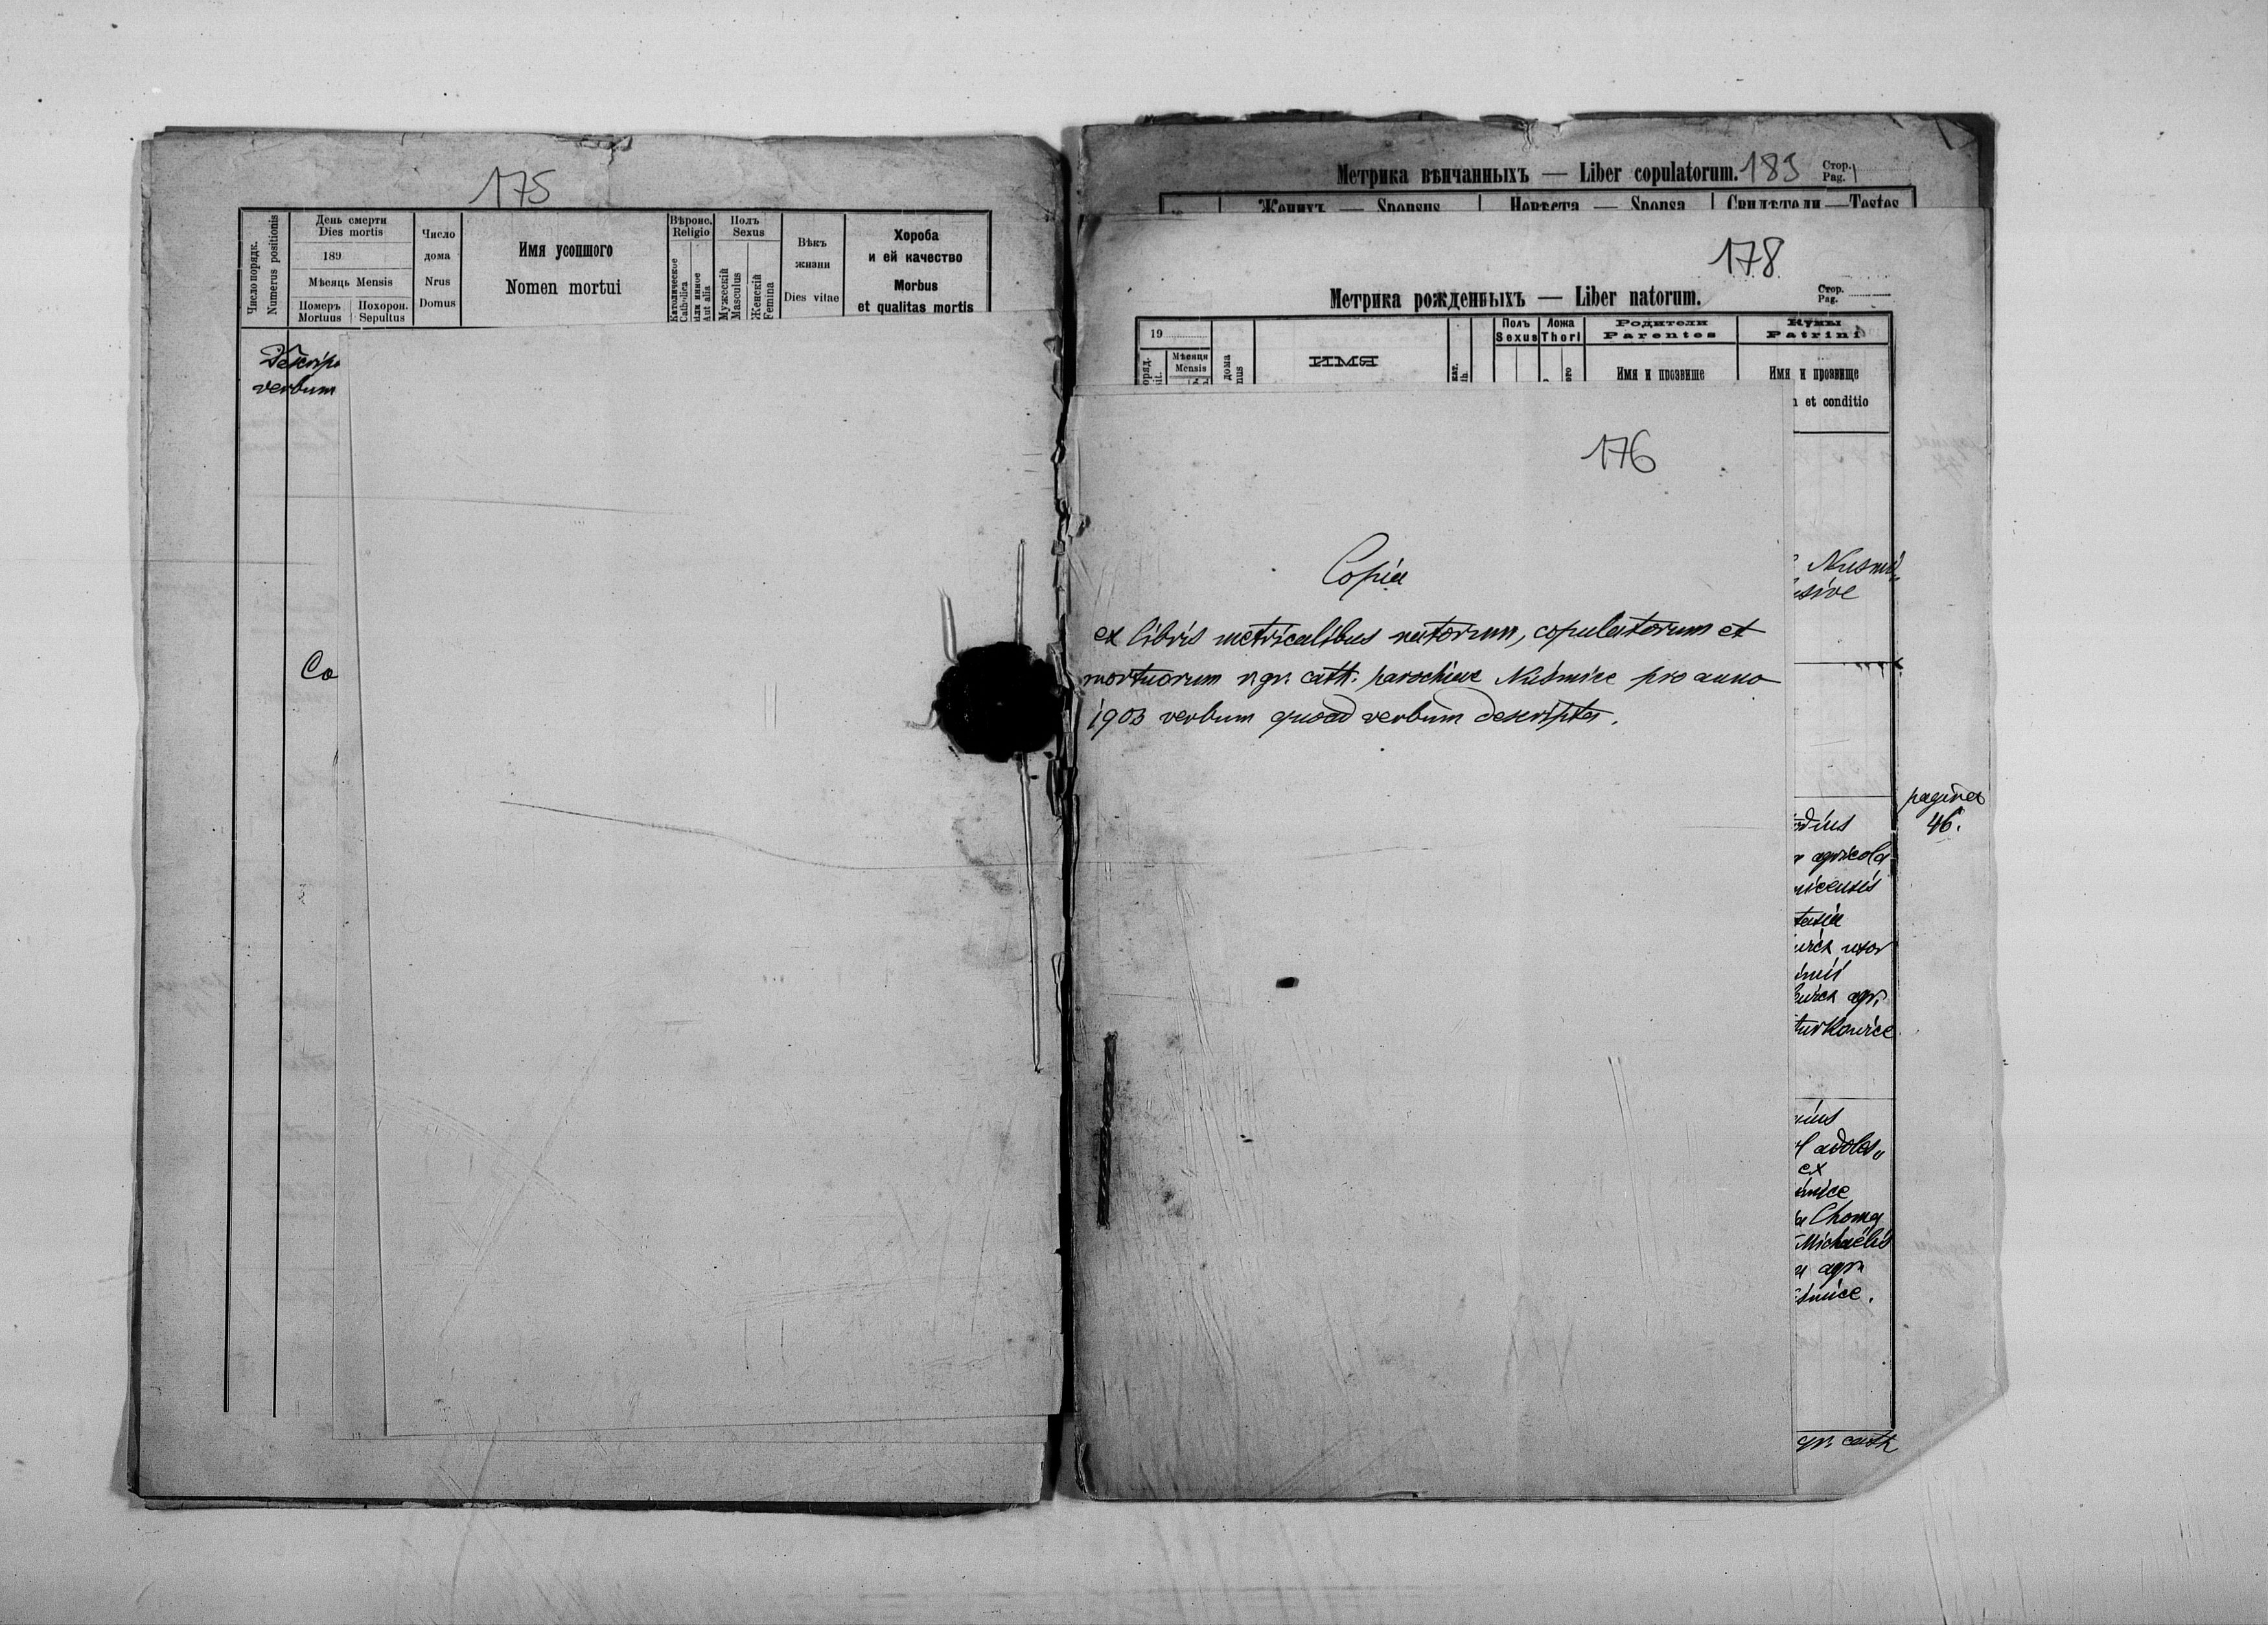 175
Число порядк.
Numerus positionis
День смерти
Dies mortis
189
Мѣсяць Mensis
Померъ
Mortuus
Похорон.
Sepultus
Число
дома
Nrus
Domus
Имя усопшого
Nomen mortui
Вѣроис.
Religio
Католическое
Catholica
или инное
Aut alia
Полъ
Sexus
Мужескій
Masculus
Женскій
Femina
Вѣкъ
жизни
Dies vitae
Хороба
и ей качество
Morbus
et qualitas mortis
Descrip
verbum
Co
Метрика вѣнчанныхъ — Liber copulatorum. 183
Стор.
Pag.
Женихъ — Sponsus
Невѣста — Sponsa
Свидѣтели — Testes
178
Метрика рожденныхъ — Liber natorum.
Стор.
Pag.
19
Мѣсяця
Mensis
дома
ИМЯ
Полъ
Sexus
Ложа
Thori
Родители
Parentes
Имя и прозвище
Кумы
Patrini
Имя и прозвище
et conditio
176
Copia
ex libris metricalibus natorum, copulatorum et
mortuorum r. gr. cath. parochiae Nuśmice pro anno
1903 verbum quoad verbum descripta.
Nusmi„
usive
pagina
46.
odius
agricola
micensis
tasia
uxor
agr.
turkowice
adoles„
ex
śmice
Choma
Michaëlis
agr.
śmice.
gr. cath